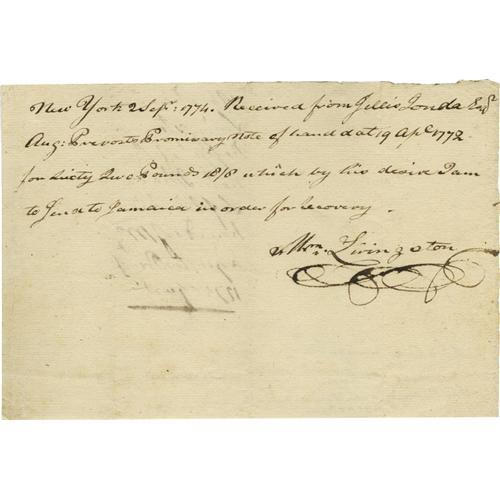 New York 2 Sepr: 1774. Received from Jellis Fonda Esqr
Aug: Prevosts Promissary Note of hand dat 19 Ape 1772
for Sixty Two Pounds 18/8 which by his desire I am
to Send to Jamaica in order for recovery.
Wm. Livingston